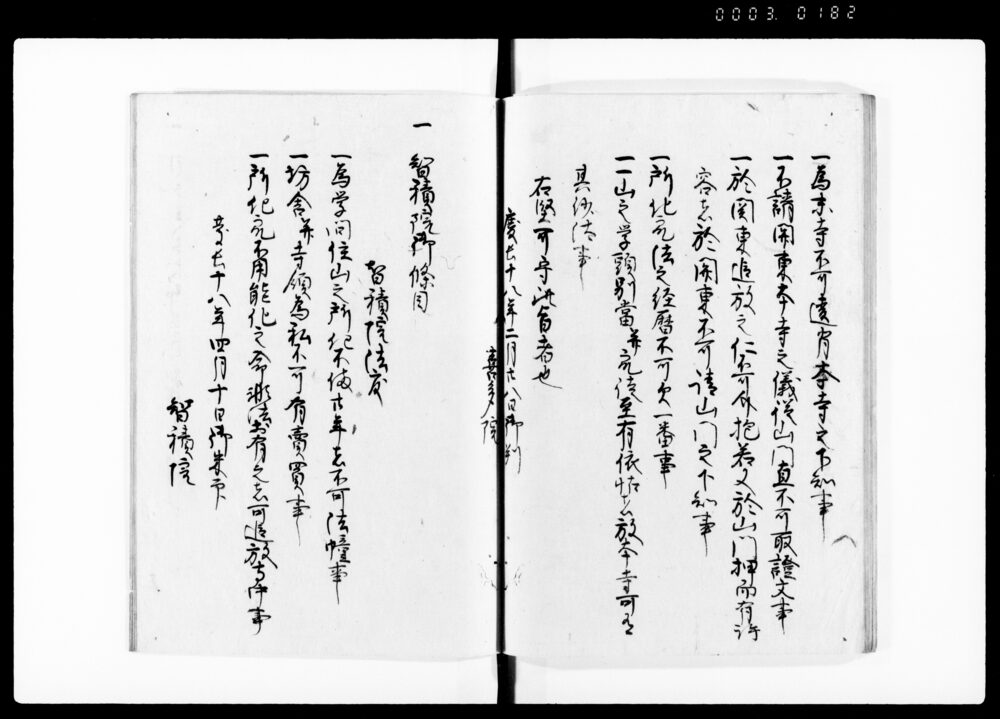 0003 0182
一為末寺不可違背本寺之下知事
一不請関東本寺之儀従山門直不可取證文事
一於関東追放之仁不可介抱若又於山門押而有許
容者於関東不可請山門之下知事
一所化衆法之経歴不可欠一番事
一一山之学頭別當并衆徒至有依怙者放本寺可有
其沙汰事
右堅可守此旨者也
慶長十八年二月廿八日御判
喜多院
一 智積院御條目
智積院法度
一為学問住山之所化不満廿年者不可法幢事
一坊舎并寺領為私不可有賣買事
一所化衆不用能化之命非法於有之者可追放寺中事
慶長十八年四月十日御朱印
智積院